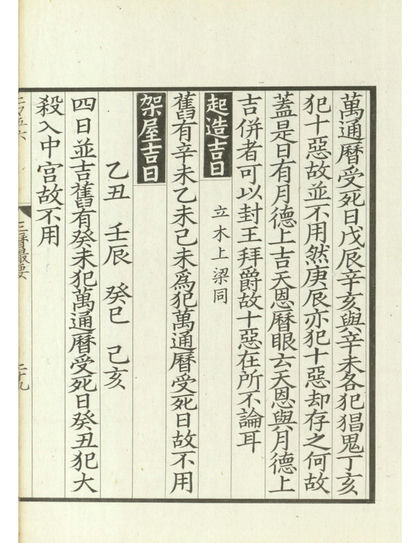 萬通曆受死日戊辰辛亥與辛未各犯猖鬼丁亥
犯十惡故並不用然庚辰亦犯十惡却存之何故
蓋是日有月德上吉天恩曆眼六天恩與月德上
吉併者可以封王拜爵故十惡在所不論耳
起造吉日
立木上梁同
舊有辛未乙未己未爲犯萬通曆受死日故不用
架屋吉日
乙丑 壬辰 癸巳 己亥
四日並吉舊有癸未犯萬通曆受死日癸丑犯大
殺入中宮故不用